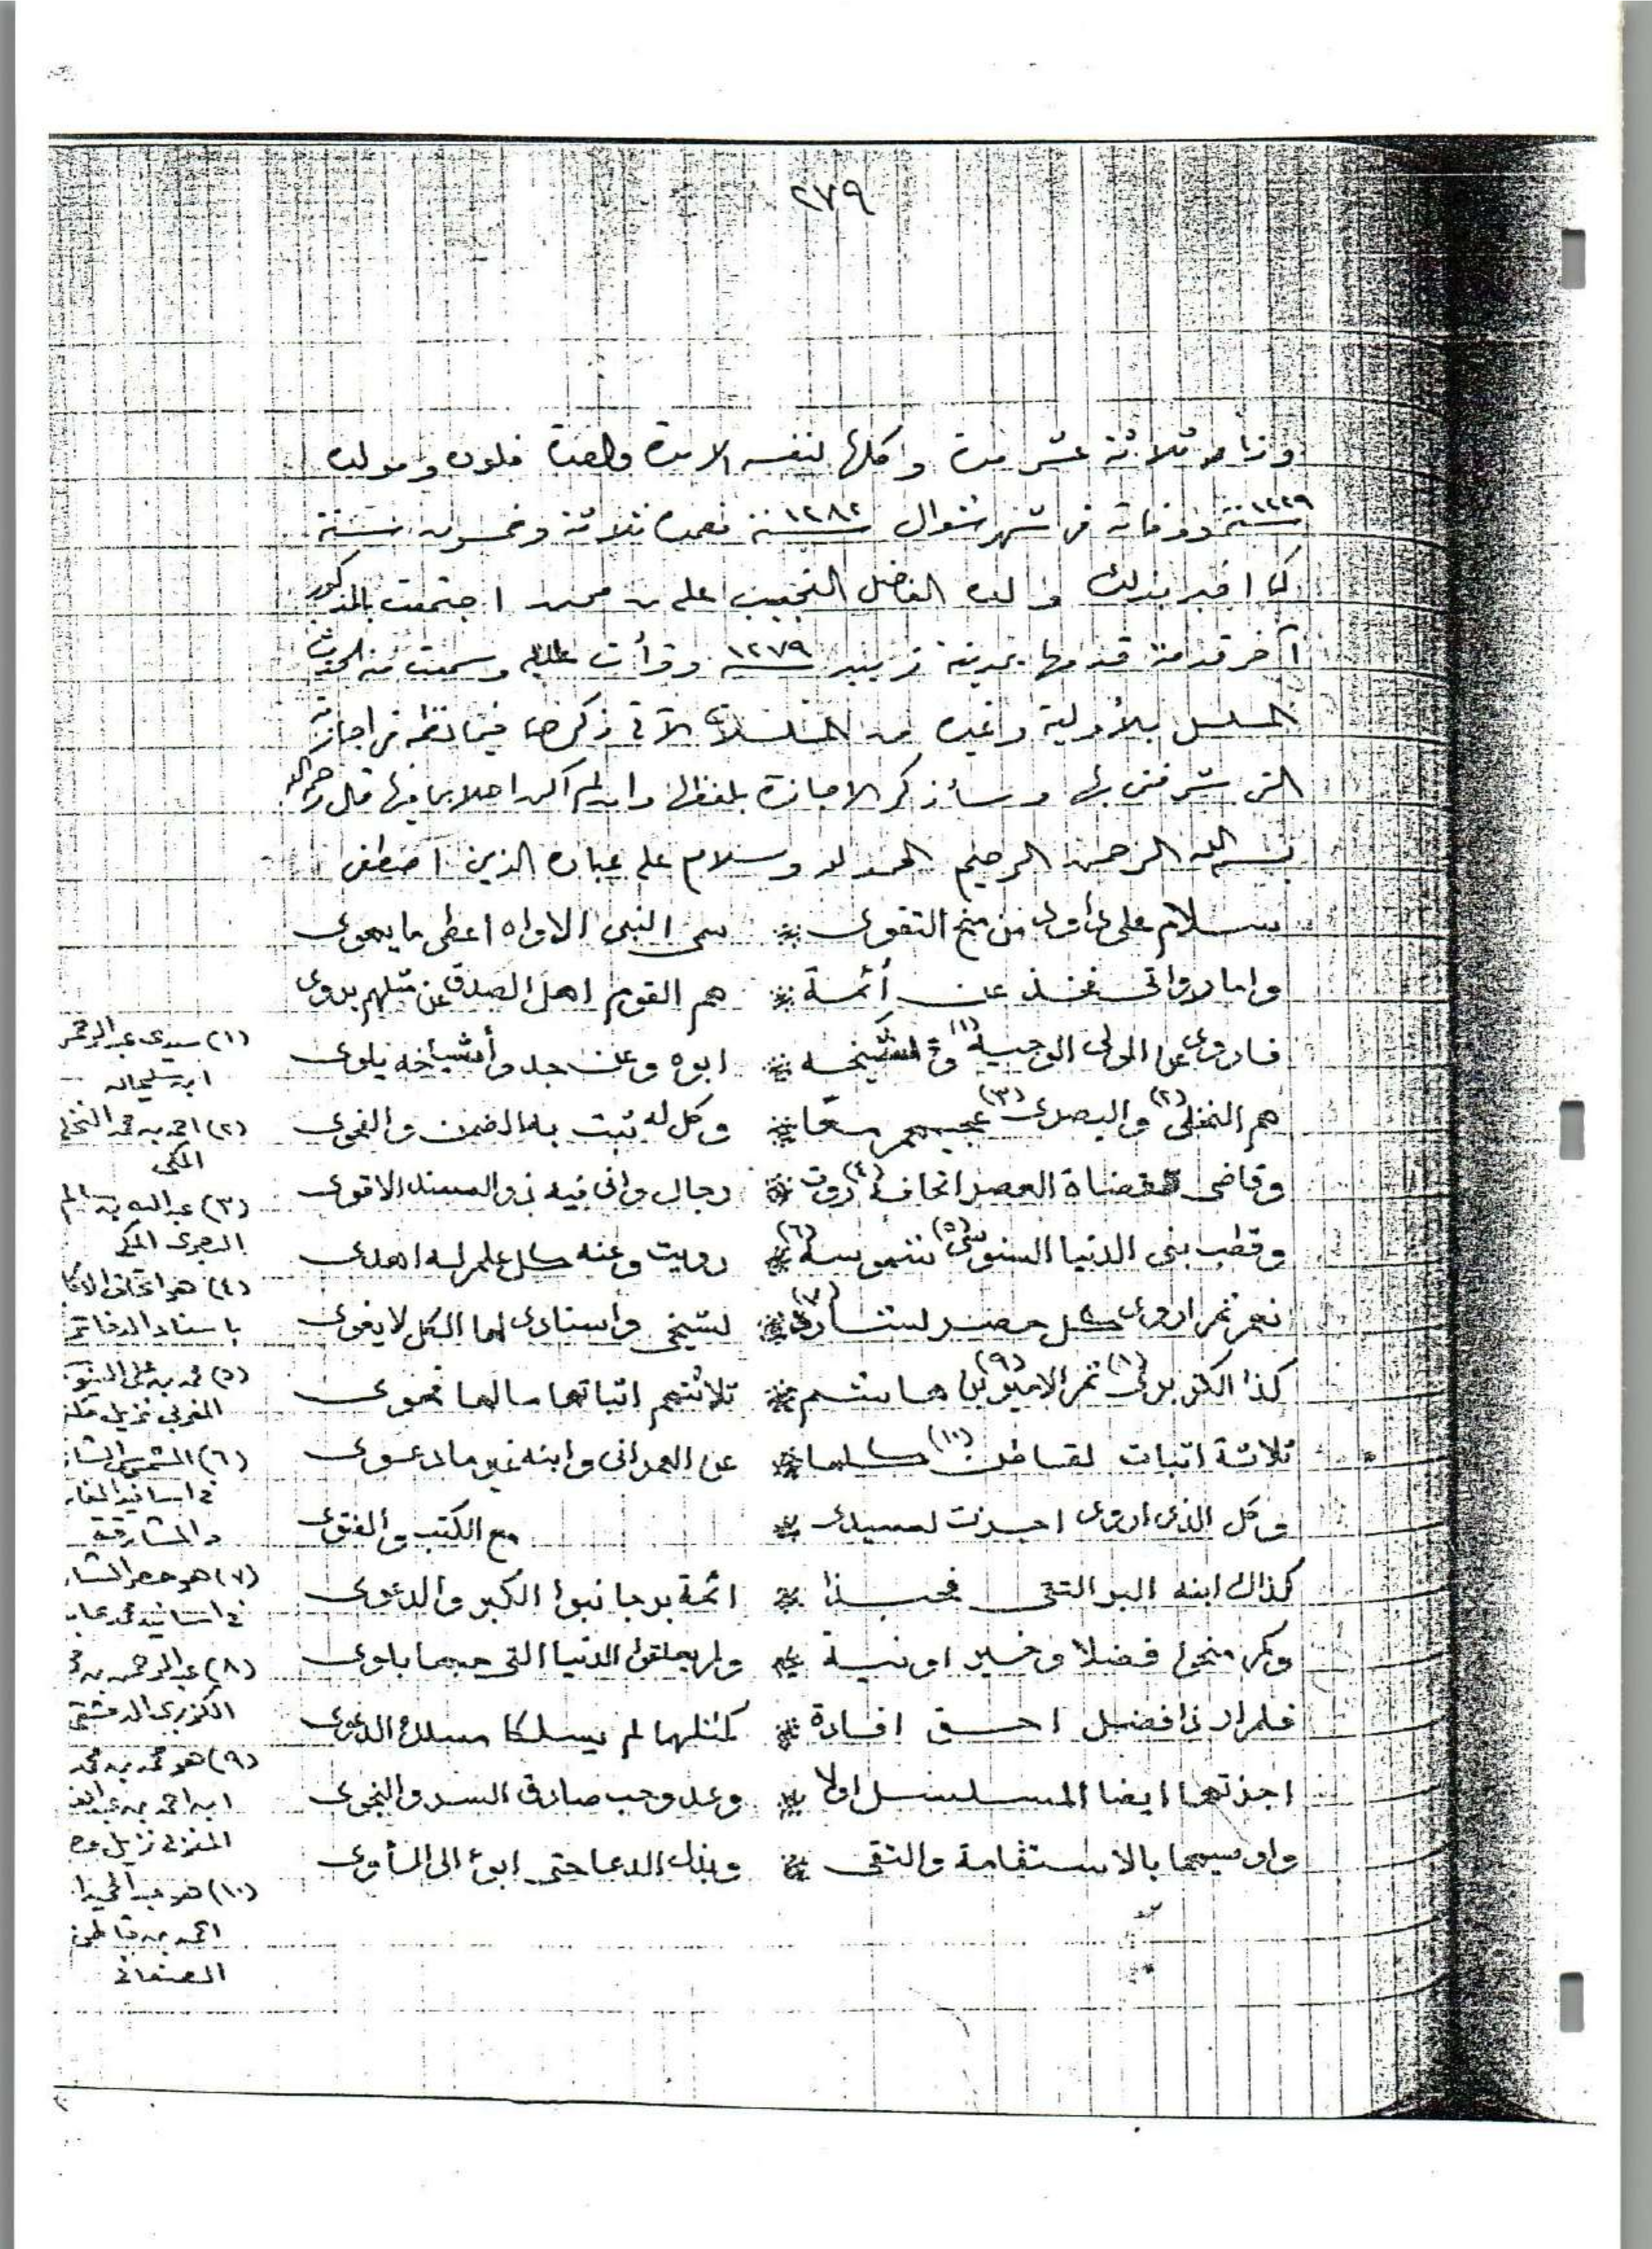 ٢٧٩
ثلاثة عشر مرة وكلها لنفسه الا مرة واحدة فلون ومولده
سنة ١٢٢٩ ووفاته في شهر شوال سنة ١٢٨٢ فعمره ثلاثة وخمسون سنة
كما اخبر بذلك ولده الفاضل النجيب علي بن محمد اجتمعت بالمذكور
آخر قدمة قدمها بمدينة زبيد سنة ١٢٧٩ وقرأت عليه وسمعت منه الحديث
المسلسل بالأولية وغيره من المسلسلات الآتي ذكرها فيما نظمه في اجازته
التي شرفني بها وسأذكر الاجازة بلفظها وان لم اكن اهلا بما فيها قال رحمه الله
بسم الله الرحمن الرحيم الحمد لله وسلام على عباده الذين اصطفى
سلام على من منح التقوى * سمي النبي الاواه اعطى ما يهوى
واما رواتي فخذ عن أئمة * هم القوم اهل الصدق عن مثلهم يروى
فاروي عن المولى الوجيه (١) وشيخه * ابوه وعن جد وأشياخه يلوى
هم النخلي (٢) والبصري (٣) عجيمهم معا * وكل له ثبت به الضمن والفحوى
وقاضي قضاة العصر اتحافه (٤) روت * رجال واني فيه ذو السند الاقوى
وقطب بني الدنيا السنوسي (٥) شموسه (٦) * رويت وعنه كل علم له اهدى
نعم ثم اروي كل حصر لشارد (٧) * لشيخي واسنادي لها الكل لا يغوى
كذا الكزبري (٨) ثم الامير (٩) بن هاشم * ثلاثتهم اثباتها سالها فحوى
ثلاثة اثبات لقاطن (١٠) كلها * عن العمراني وابنه غير ما دعوى
وكل الذي اروي اجزت لسيدي * مع الكتب والفتوى
كذاك ابنه البر التقي فحبذا * ائمة بر جانبوا الكبر والدعوى
وكم منحوا فضلا وخير اونية * ولم يعلقوا الدنيا التي حبها بلوى
فلم ار ذا فضل احق افادة * كمثلهما لم يسلكا مسلك الدعوى
اجزتهما ايضا المسلسل اولا * وعد وحب صادق السر والنجوى
واوصيهما بالاستقامة والتقى * وبذل الدعا حتى ابوء الى المأوى
(١) سيدي عبد الرحمن
ابن سليمان
(٢) احمد بن محمد النخلي
المكي
(٣) عبد الله بن سالم
البصري المكي
(٤) هو اتحاف الاكا
باسناد الدفاتر
(٥) محمد بن علي السنو
المغربي نزيل مكة
(٦) الشموس الشا
في اسانيد المغار
والمشارقة
(٧) هو حصر الشا
في اسانيد محمد عاب
(٨) عبد الرحمن بن
الكزبري الدمشقي
(٩) هو محمد بن محمد
ابن احمد بن
المغربي نزيل
(١٠) هو عبد الحميد
احمد بن قاطن
الصنعاني